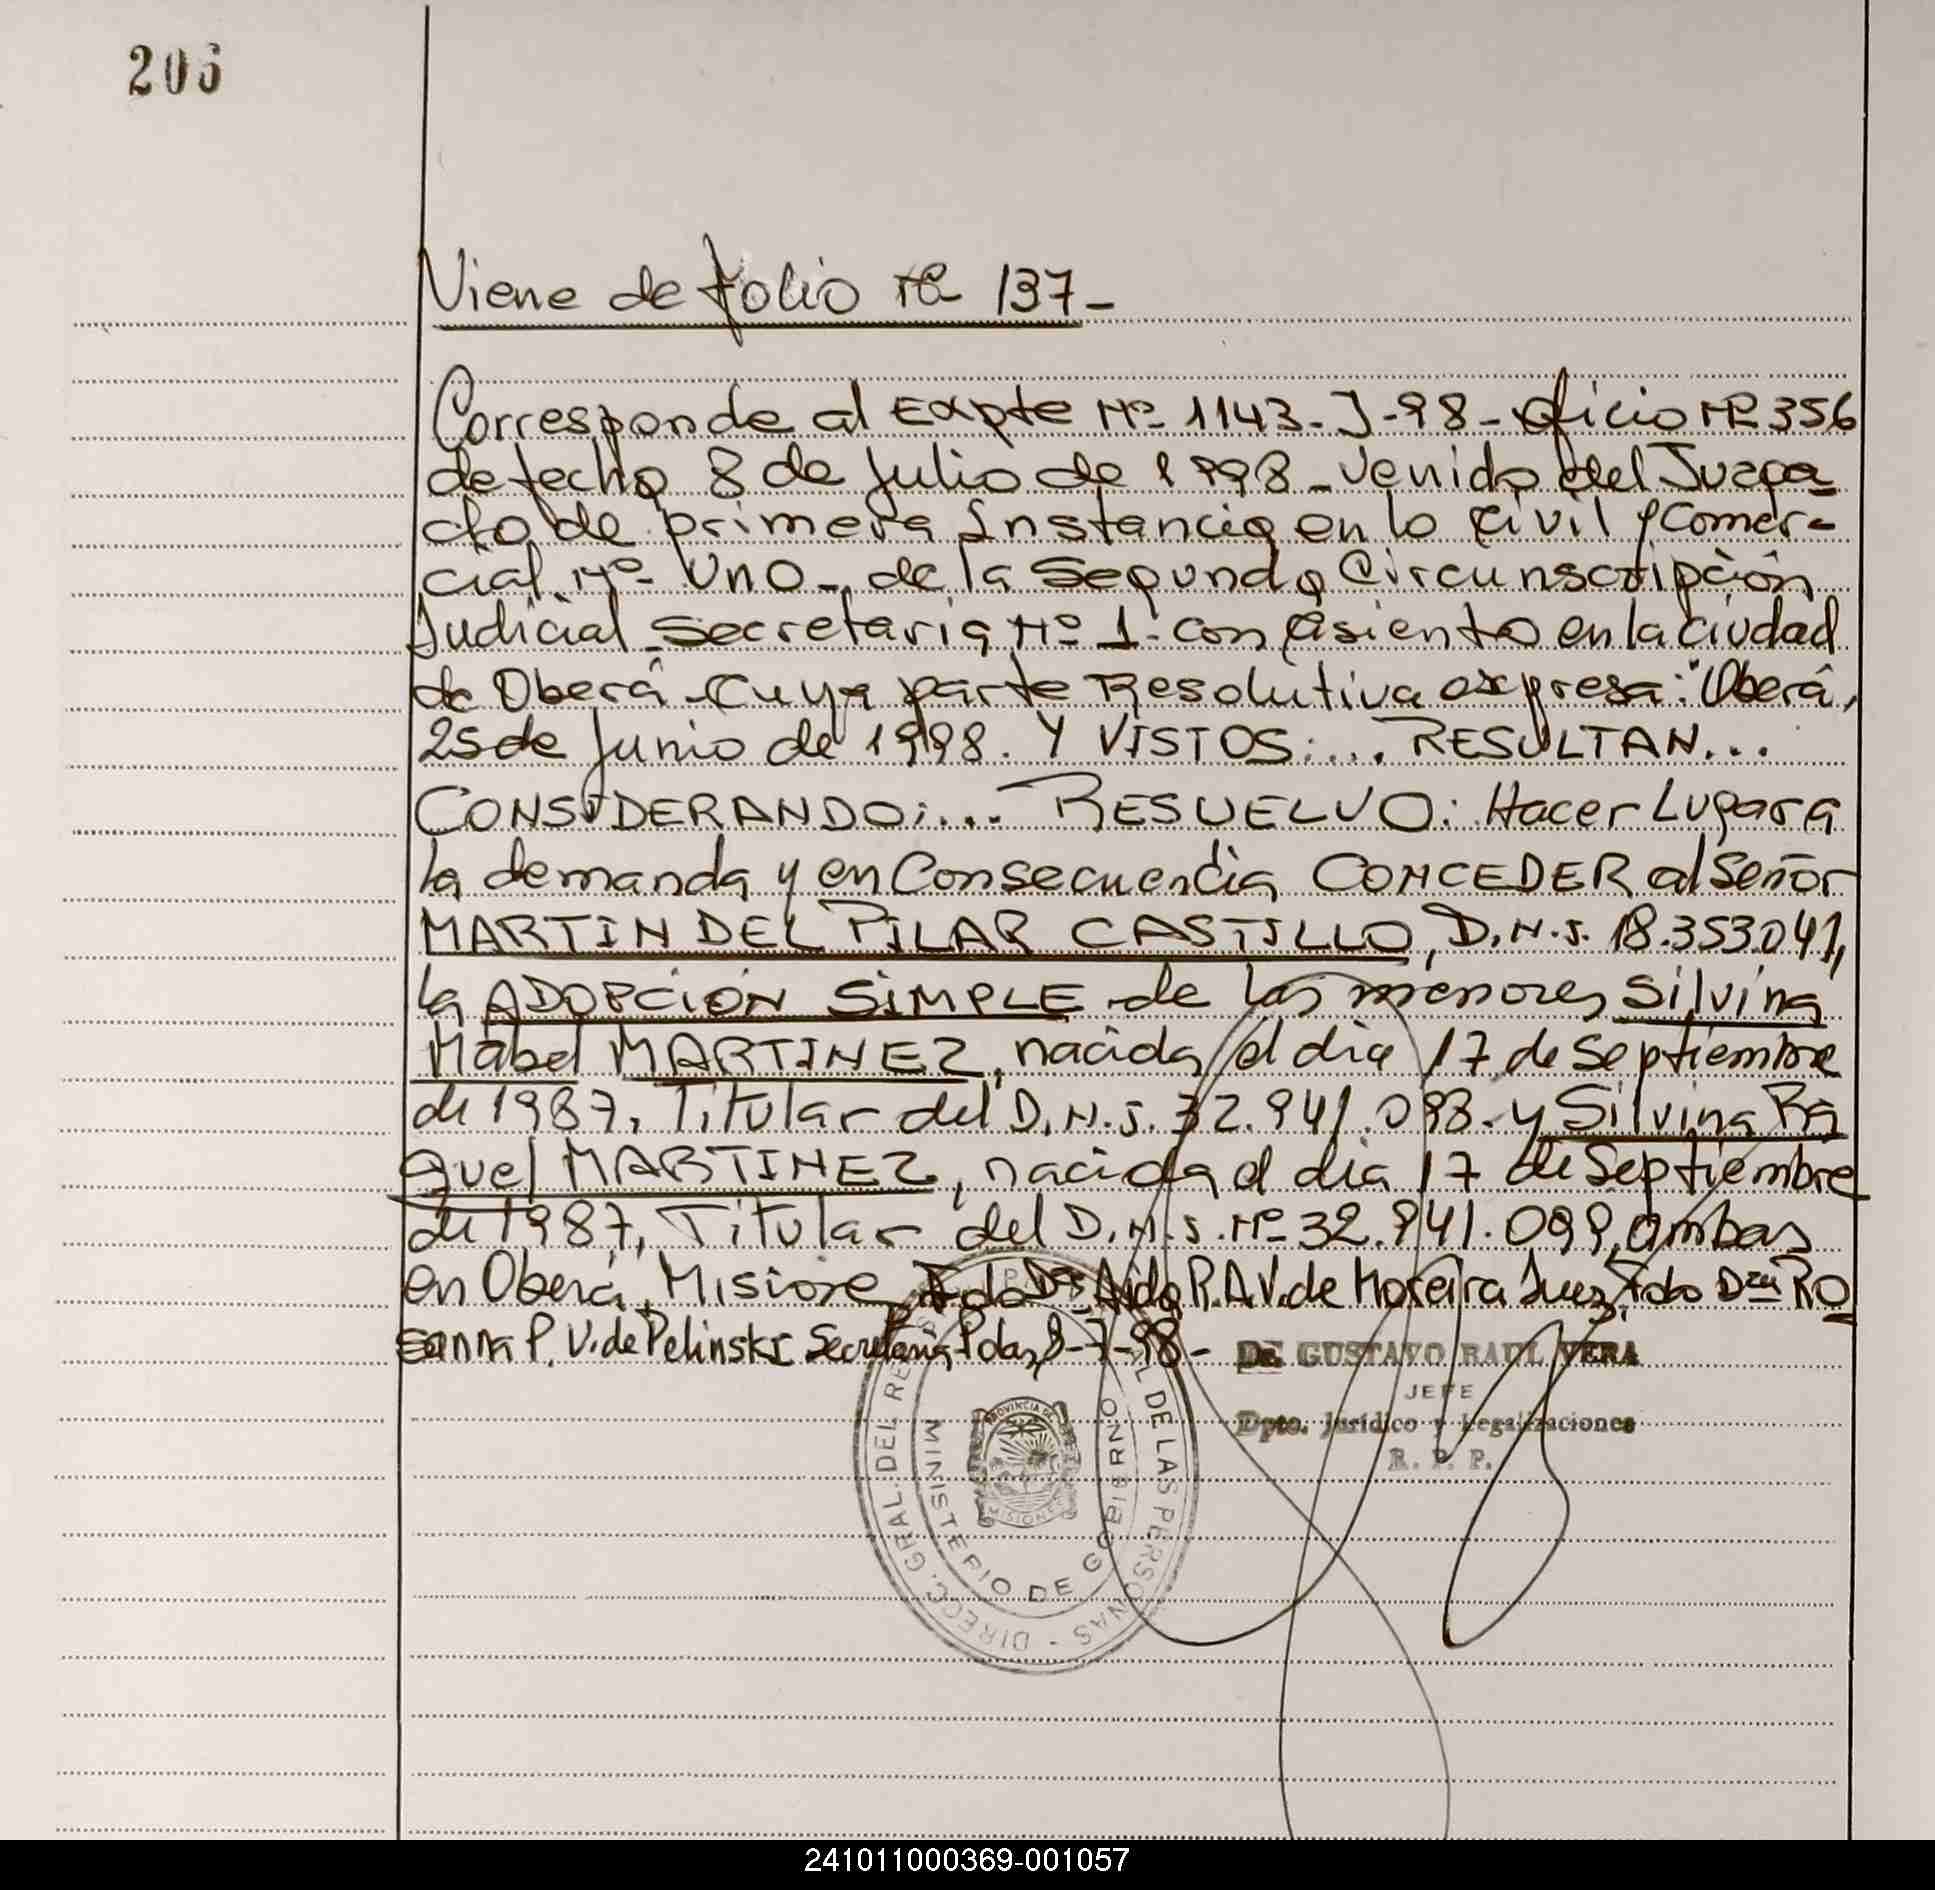 206
Viene de folio Nº 137-
Corresponde al Expte Nº 1143-J-98- oficio Nº 356
de fecha 8 de Julio de 1998 - venido del Juzga-
do de primera Instancia en lo Civil y Comer-
cial Nº Uno - de la Segunda Circunscripción
Judicial Secretaria Nº 1- con asiento en la ciudad
de Oberá - Cuya parte Resolutiva expresa: "Oberá,
25 de Junio de 1998. Y VISTOS:... RESULTAN...
CONSIDERANDO:... RESUELVO: Hacer Lugar a
la demanda y en Consecuencia CONCEDER al Señor
MARTIN DEL PILAR CASTILLO, D.N.I. 18.353.041,
la ADOPCIÓN SIMPLE de las menores Silvina
Mabel MARTINEZ, nacida el dia 17 de Septiembre
de 1987, Titular del D.N.I. 32.941.098- y Silvina Ra
quel MARTINEZ, nacida el dia 17 de Septiembre
de 1987, Titular del D.N.I. Nº 32.941.099, ambas
en Oberá, Misiones, Fdo Dra. Aida R.A.V. de Moreira Juez, Fdo Dra RO
sanna P. V. de Pelinski Secretaria, Pdas, 8-7-98-
Dr. GUSTAVO RAUL VERA
JEFE
Dpto. Jurídico y Legalizaciones
R. P. P.
DIRECC. GRAL. DEL DE LAS PERSONAS
MINISTERIO DE GOBIERNO
PROVINCIA DE
MISIONES
241011000369-001057